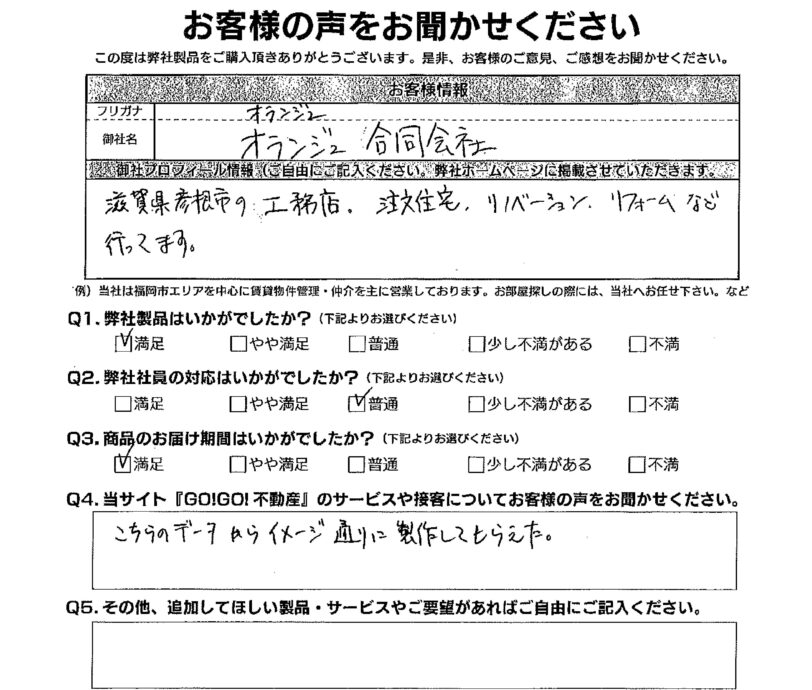 お客様の声をお聞かせください
この度は弊社製品をご購入頂きありがとうございます。是非、お客様のご意見、ご感想をお聞かせください。
お客様情報
フリガナ オランジュ
御社名 オランジュ 合同会社
御社プロフィール情報（ご自由にご記入ください。弊社ホームページに掲載させていただきます。
滋賀県彦根市の工務店。注文住宅、リノベーション、リフォームなど
行ってます。
例）当社は福岡市エリアを中心に賃貸物件管理・仲介を主に営業しております。お部屋探しの際には、当社へお任せ下さい。など
Q1.弊社製品はいかがでしたか？（下記よりお選びください）
☑満足 □やや満足 □普通 □少し不満がある □不満
Q2.弊社社員の対応はいかがでしたか？（下記よりお選びください）
□満足 □やや満足 ☑普通 □少し不満がある □不満
Q3.商品のお届け期間はいかがでしたか？（下記よりお選びください）
☑満足 □やや満足 □普通 □少し不満がある □不満
Q4.当サイト『GO!GO!不動産』のサービスや接客についてお客様の声をお聞かせください。
こちらのデータからイメージ通りに製作してもらえた。
Q5.その他、追加してほしい製品・サービスやご要望があればご自由にご記入ください。